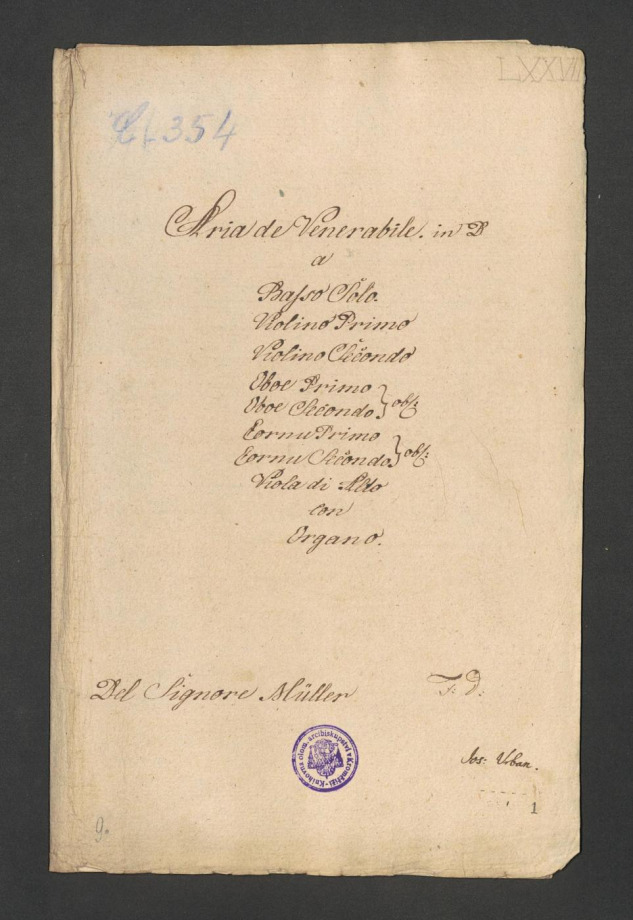 LXXVII
354
Aria de Venerabile. in D
a
Basso Solo.
Violino Primo
Violino Secondo
Oboe Primo
Oboe Secondo } obl:
Cornu Primo
Cornu Secondo } obl:
Viola di Alto
con
Organo.
Del Signore Müller
F: D:
Knihovna olom. arcibiskupství v Kroměříži
Jos: Urban.
1
9.